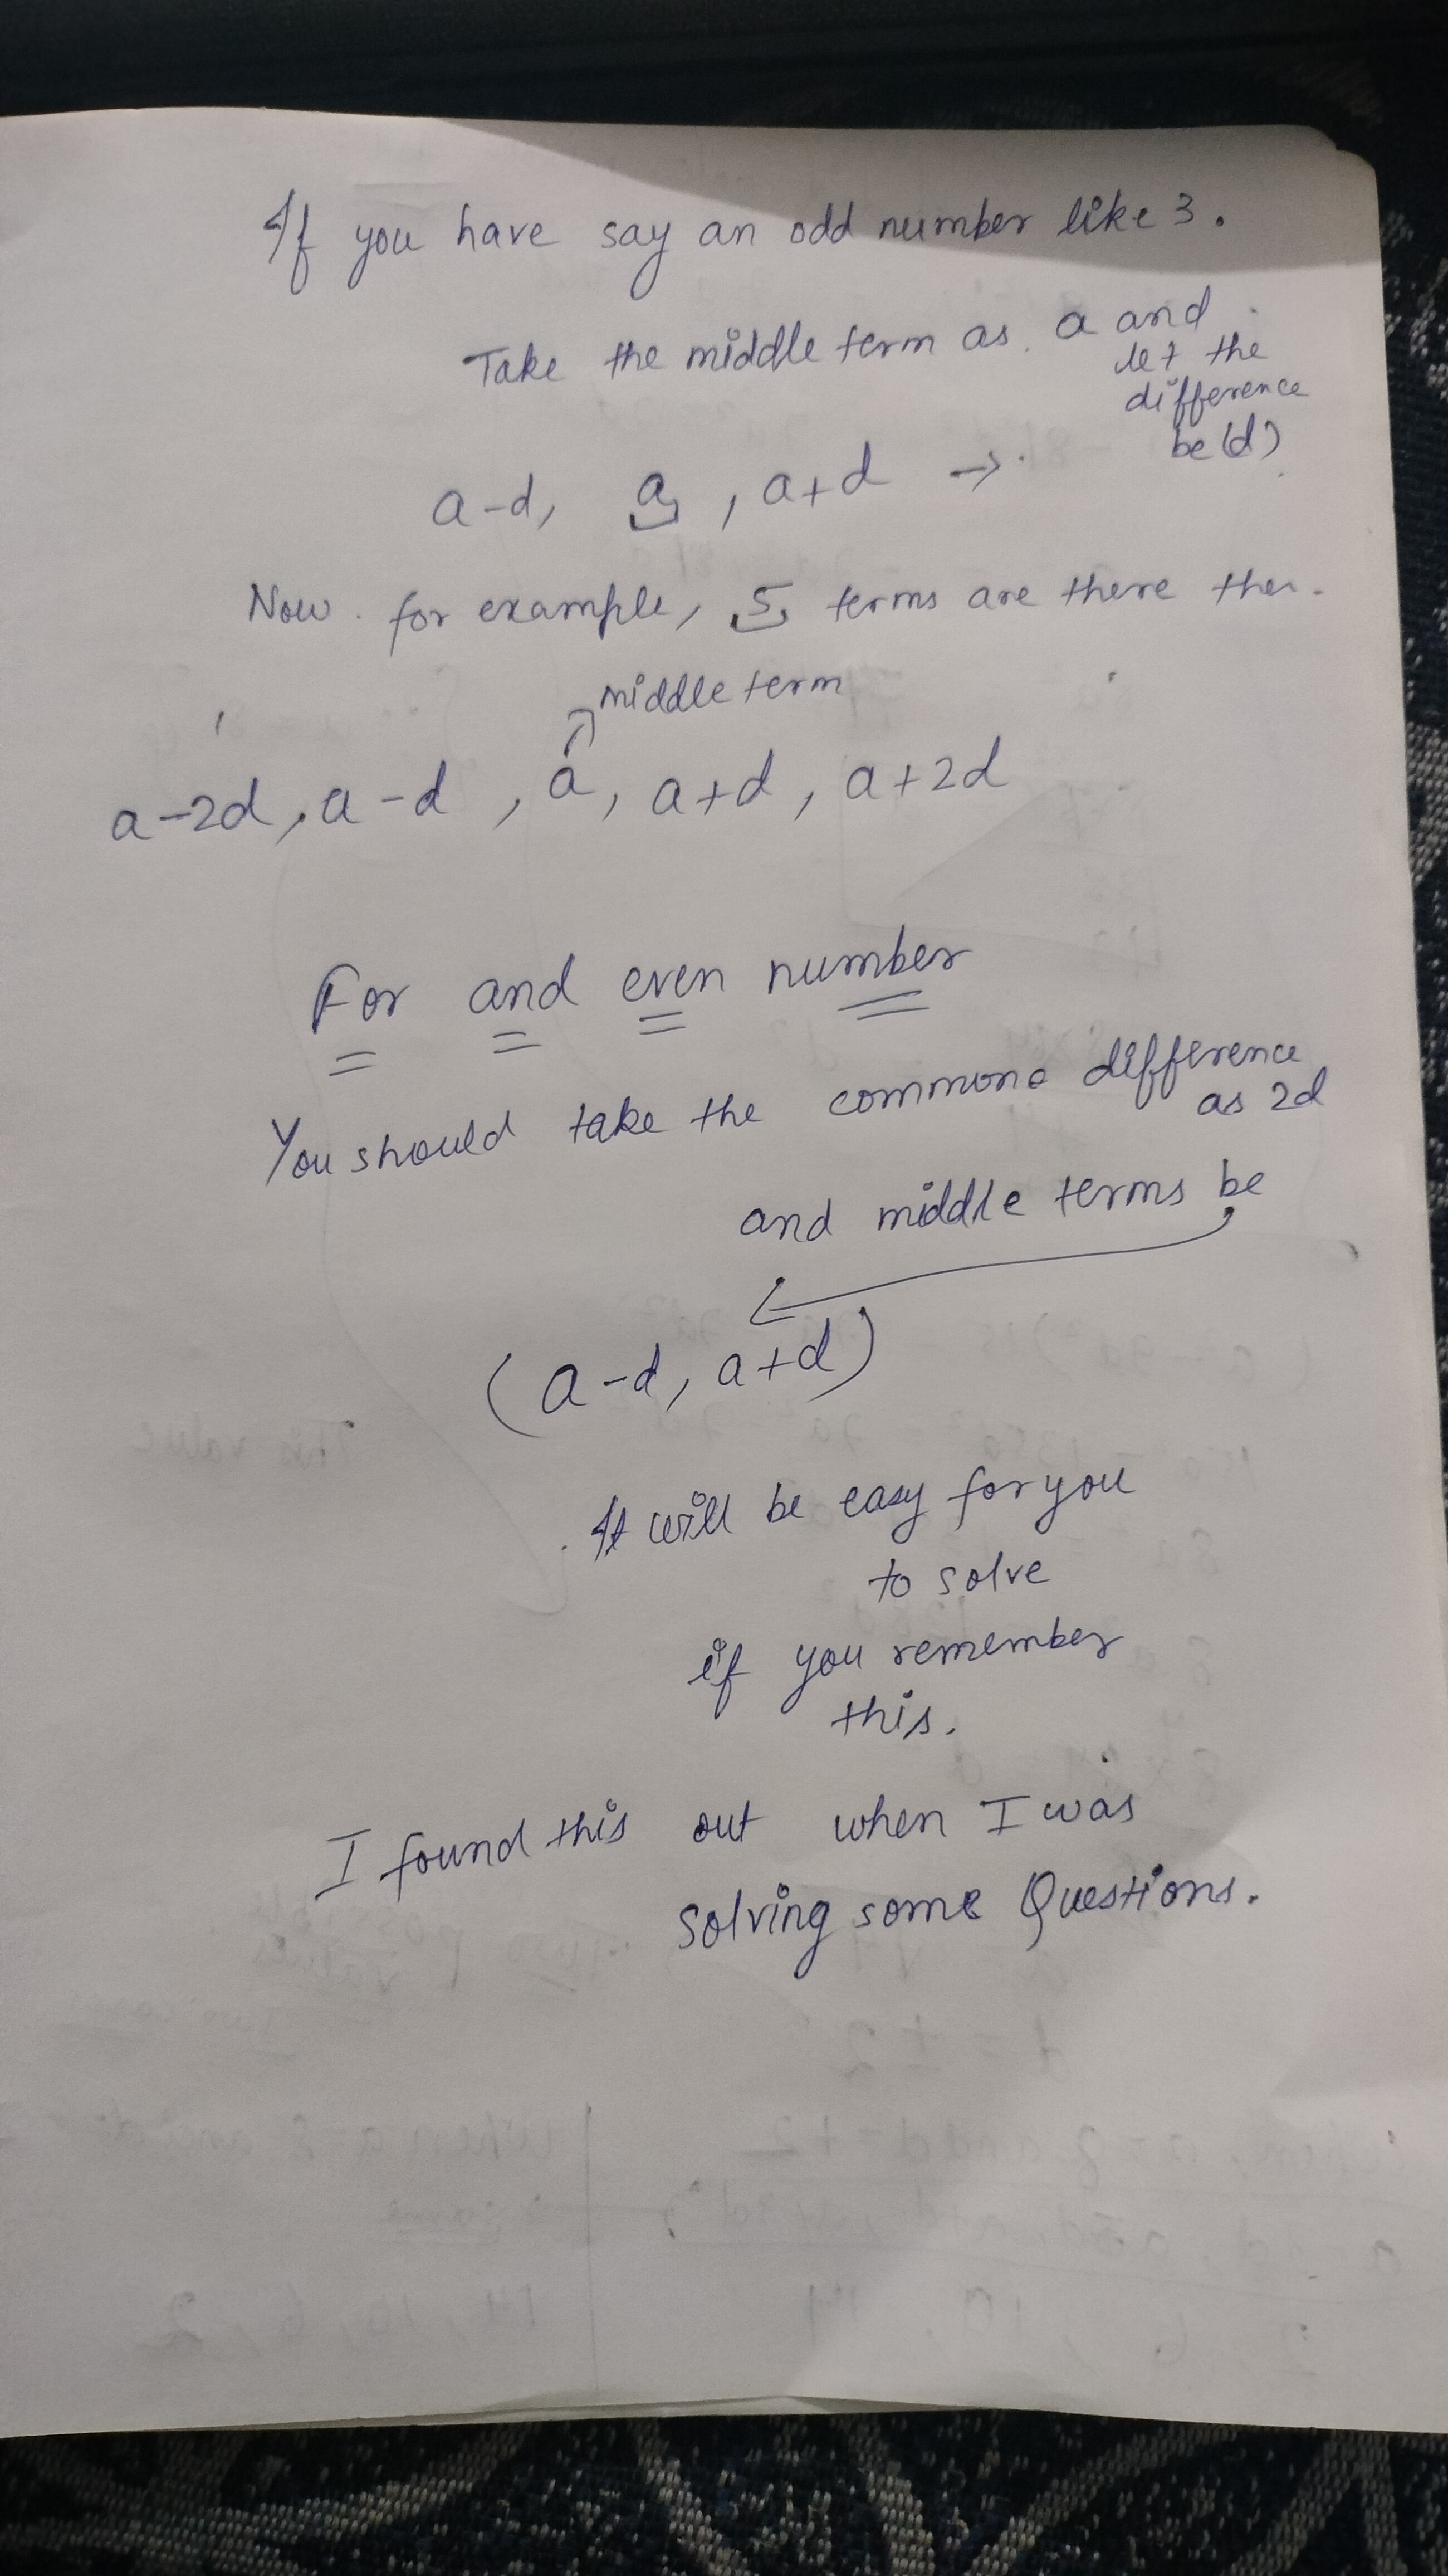 If you have say an odd number like 3.
Take the middle term as a and
let the
difference
be (d)
a-d, a, a+d →
Now for example, 5 terms are there then
middle term
a-2d, a-d, a, a+d, a+2d
For and even number
You should take the common difference
as 2d
and middle terms be
(a-d, a+d)
It will be easy for you
to solve
if you remember
this.
I found this out when I was
solving some Questions.